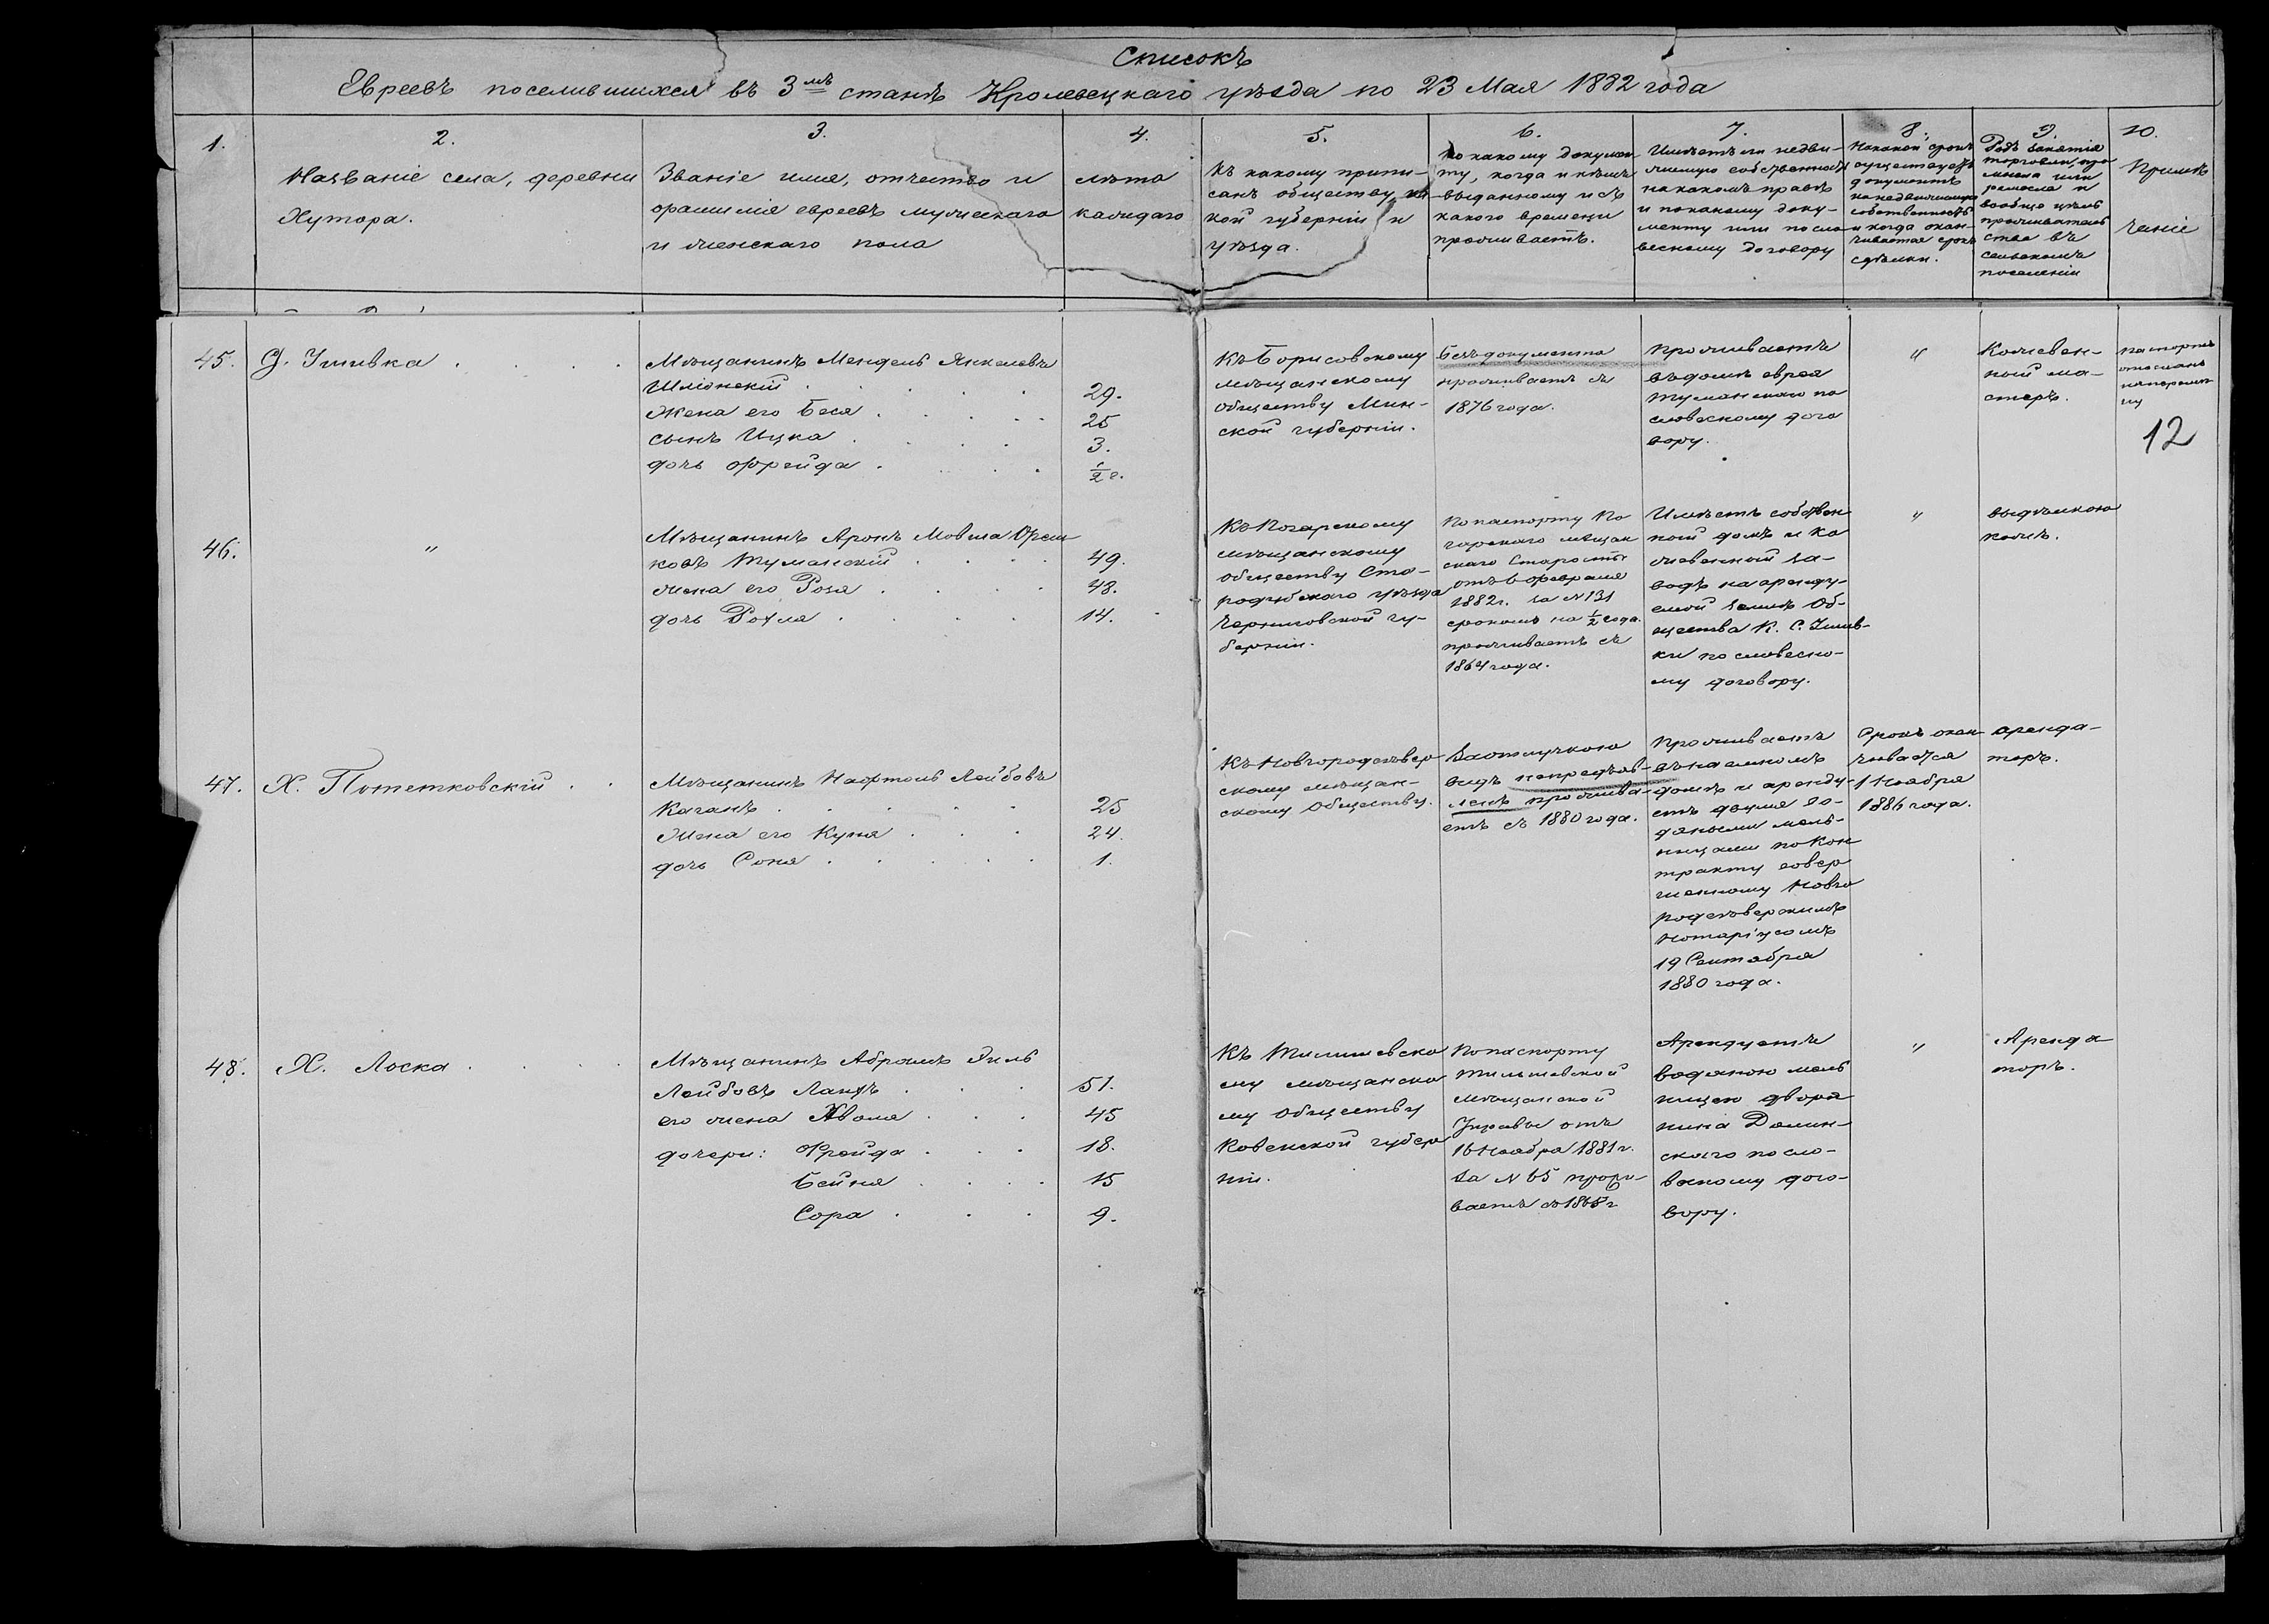 Списокъ
Евреевъ поселившихся въ 3мъ станѣ Кролевецкаго уѣзда по 23 Мая 1882 года
1.
2.
Названіе села, деревни
Хутора.
3.
Званіе имя, отчество и
фамилія евреевъ мужескаго
и женскаго пола
4.
лѣта
каждаго
5.
Къ какому припи-
санъ обществу, ка
кой губерніи и
уѣзда.
6.
по какому докумен
ту, когда и кѣмъ
выданному и съ
какого времени
проживаетъ.
7.
Имѣетъ ли недви-
жимую собственность
на какомъ правѣ
и по какому доку-
менту или по сло
весному договору
8.
На какой срокъ
существуетъ
документъ
на недвижимую
собственность
и когда окан-
чивается срокъ
сдѣлки.
9.
Родъ занятія
торговли, про
мысла или
ремесла и
вообще цѣль
проживатель
ства въ
сельскомъ
поселеніи
10.
Примѣ
чаніе
45.
Д. Имшвка
Мѣщанинъ Мендель Янкелевъ
Шліонскій 29.
Жена его Бася 25
сынъ Ицка 3.
дочь Фрейда 1/2 г.
Къ Борисовскому
мѣщанскому
обществу Мин-
ской губерніи.
Безъ документа
проживаетъ съ
1876 года.
Проживаетъ
въ домѣ еврея
Туманскаго по
словескому дого
вору.
"
Кожевен-
ный ма-
стеръ.
Паспортъ
отосланъ
12
46.
"
Мѣщанинъ Аронъ Мовша
ковъ Туманскій 49.
жена его Роза 48.
дочь Рохля 14.
Къ Погарскому
мѣщанскому
обществу Ста-
родубскаго уѣзда
Черниговской гу-
берніи.
По паспорту По
гарскаго мѣщан
скаго Старосты
отъ 6 февраля
1882 г. за N 131
срокомъ на 1/2 года.
проживаетъ съ
1864 года.
Имѣетъ собствен
ный домъ и ко
жевенный за-
водъ на аренду-
емой землѣ Об-
щества К. С. Имшв-
ки по словесно-
му договору.
"
выдѣлкою
кожъ.
47.
Х. Потетковскій
Мѣщанинъ Нафтоль Лейбовъ
Каганъ 25
Жена его Куня 24.
дочь Соня 1.
Къ Новгородсѣвер
скому мѣщан-
скому Обществу.
За отлучкою
видъ непредъяв-
ленъ прожива-
етъ съ 1880 года.
Проживаетъ
въ наемномъ
домѣ и аренду-
етъ двумя во-
дяными мель-
ницами по кон
тракту совер
шенному Новго
родсѣверскимъ
Нотаріусомъ
19 Сентября
1880 года.
Срокъ окан
чивается
1 Ноября
1886 года.
аренда-
торъ.
48.
Х. Лоска
Мѣщанинъ Абрамъ Эиль
Лейбовъ Ланцъ 51.
его жена Хволя 45
дочери: Фрейда 18.
Бейня 15
Сора 9.
Къ Тильшевско
му мѣщанско
му обществу
Ковенской губер
ніи.
По паспорту
Тильшевской
Мѣщанской
Управы отъ
16 Ноября 1881 г.
за N 65 прожи
ваетъ съ 1868 г
Арендуетъ
водяною мель
ницею дворя
нина Долин-
скаго по сло-
вескому дого-
вору.
"
Аренда
торъ.